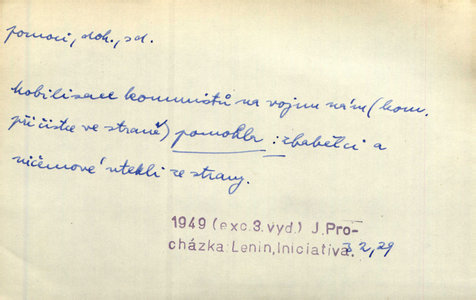 pomoci, dok., sd.
Mobilisace komunistů na vojnu nám (kom.
při čistce ve straně) pomohla : zbabělci a
ničemové utekli ze strany.
1949 (exc. 3. vyd.) J. Pro-
cházka: Lenin, Iniciativa. 2, 29